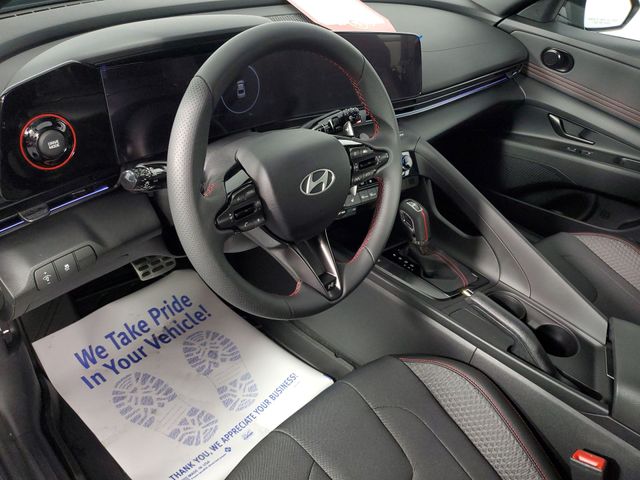 DRIVE
MODE
We Take Pride
In Your Vehicle!
THANK YOU, WE APPRECIATE YOUR BUSINESS!